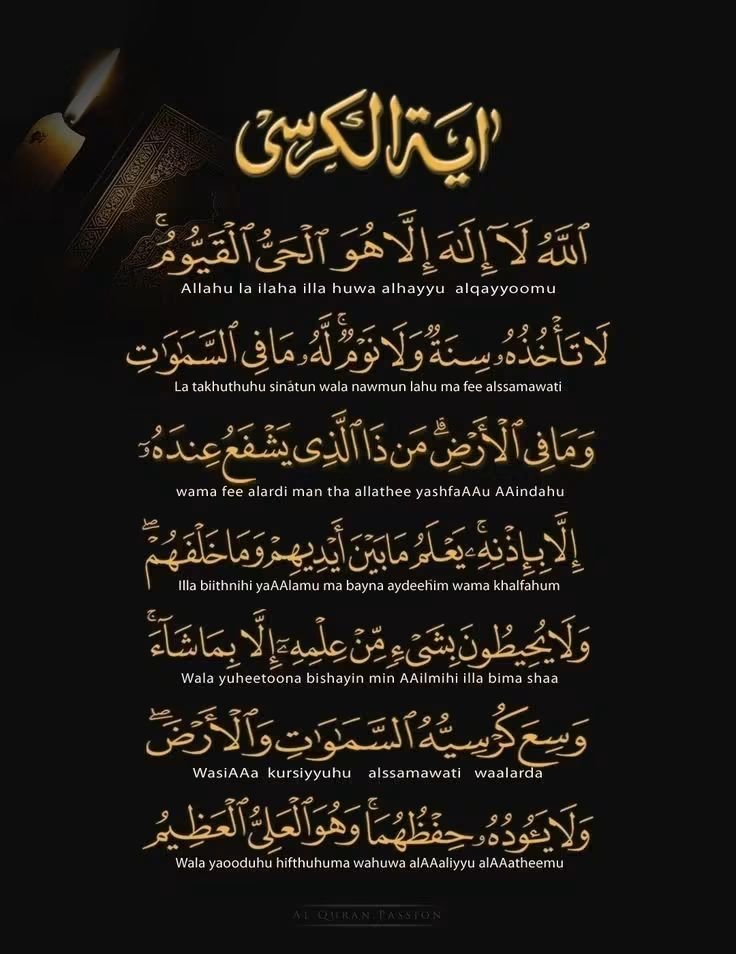 اية الكرسي
ٱللَّهُ لَآ إِلَٰهَ إِلَّا هُوَ ٱلْحَىُّ ٱلْقَيُّومُ ۚ
Allahu la ilaha illa huwa alhayyu alqayyoomu
لَا تَأْخُذُهُۥ سِنَةٌ وَلَا نَوْمٌ ۚ لَّهُۥ مَا فِى ٱلسَّمَٰوَٰتِ
La takhuthuhu sinátun wala nawmun lahu ma fee alssamawati
وَمَا فِى ٱلْأَرْضِ ۗ مَن ذَا ٱلَّذِى يَشْفَعُ عِندَهُۥٓ
wama fee alardi man tha allathee yashfaAAu AAindahu
إِلَّا بِإِذْنِهِۦ ۚ يَعْلَمُ مَا بَيْنَ أَيْدِيهِمْ وَمَا خَلْفَهُمْ ۖ
Illa biithnihi yaAAlamu ma bayna aydeehim wama khalfahum
وَلَا يُحِيطُونَ بِشَىْءٍ مِّنْ عِلْمِهِۦٓ إِلَّا بِمَا شَآءَ ۚ
Wala yuheetoona bishayin min AAilmihi illa bima shaa
وَسِعَ كُرْسِيُّهُ ٱلسَّمَٰوَٰتِ وَٱلْأَرْضَ ۖ
WasiAAa kursiyyuhu alssamawati waalarda
وَلَا يَـُٔودُهُۥ حِفْظُهُمَا ۚ وَهُوَ ٱلْعَلِىُّ ٱلْعَظِيمُ
Wala yaooduhu hifthuhuma wahuwa alAAaliyyu alAAatheemu
AL QURAN PASSION